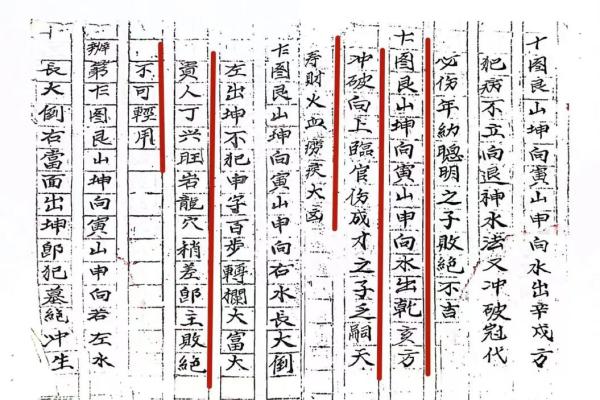 十图艮山坤向寅山申向水出辛戍方
犯病不立向退神水法又冲破冠代
必伤年幼聰明之子敗絕不吉
十一图艮山坤向寅山申向水出乾亥方
冲破向上臨官伤成才之子乏嗣夭
寿財火血癆疾大凶
十二图艮山坤向寅山申向右水長大倒
左出坤不犯申字百步轉欄大富大
貴人丁兴旺若龍穴稍差郎主敗絕
不可輕用
辦第十三图艮山坤向寅山申向若左水
長大倒右當面出坤郎犯墓絕冲生